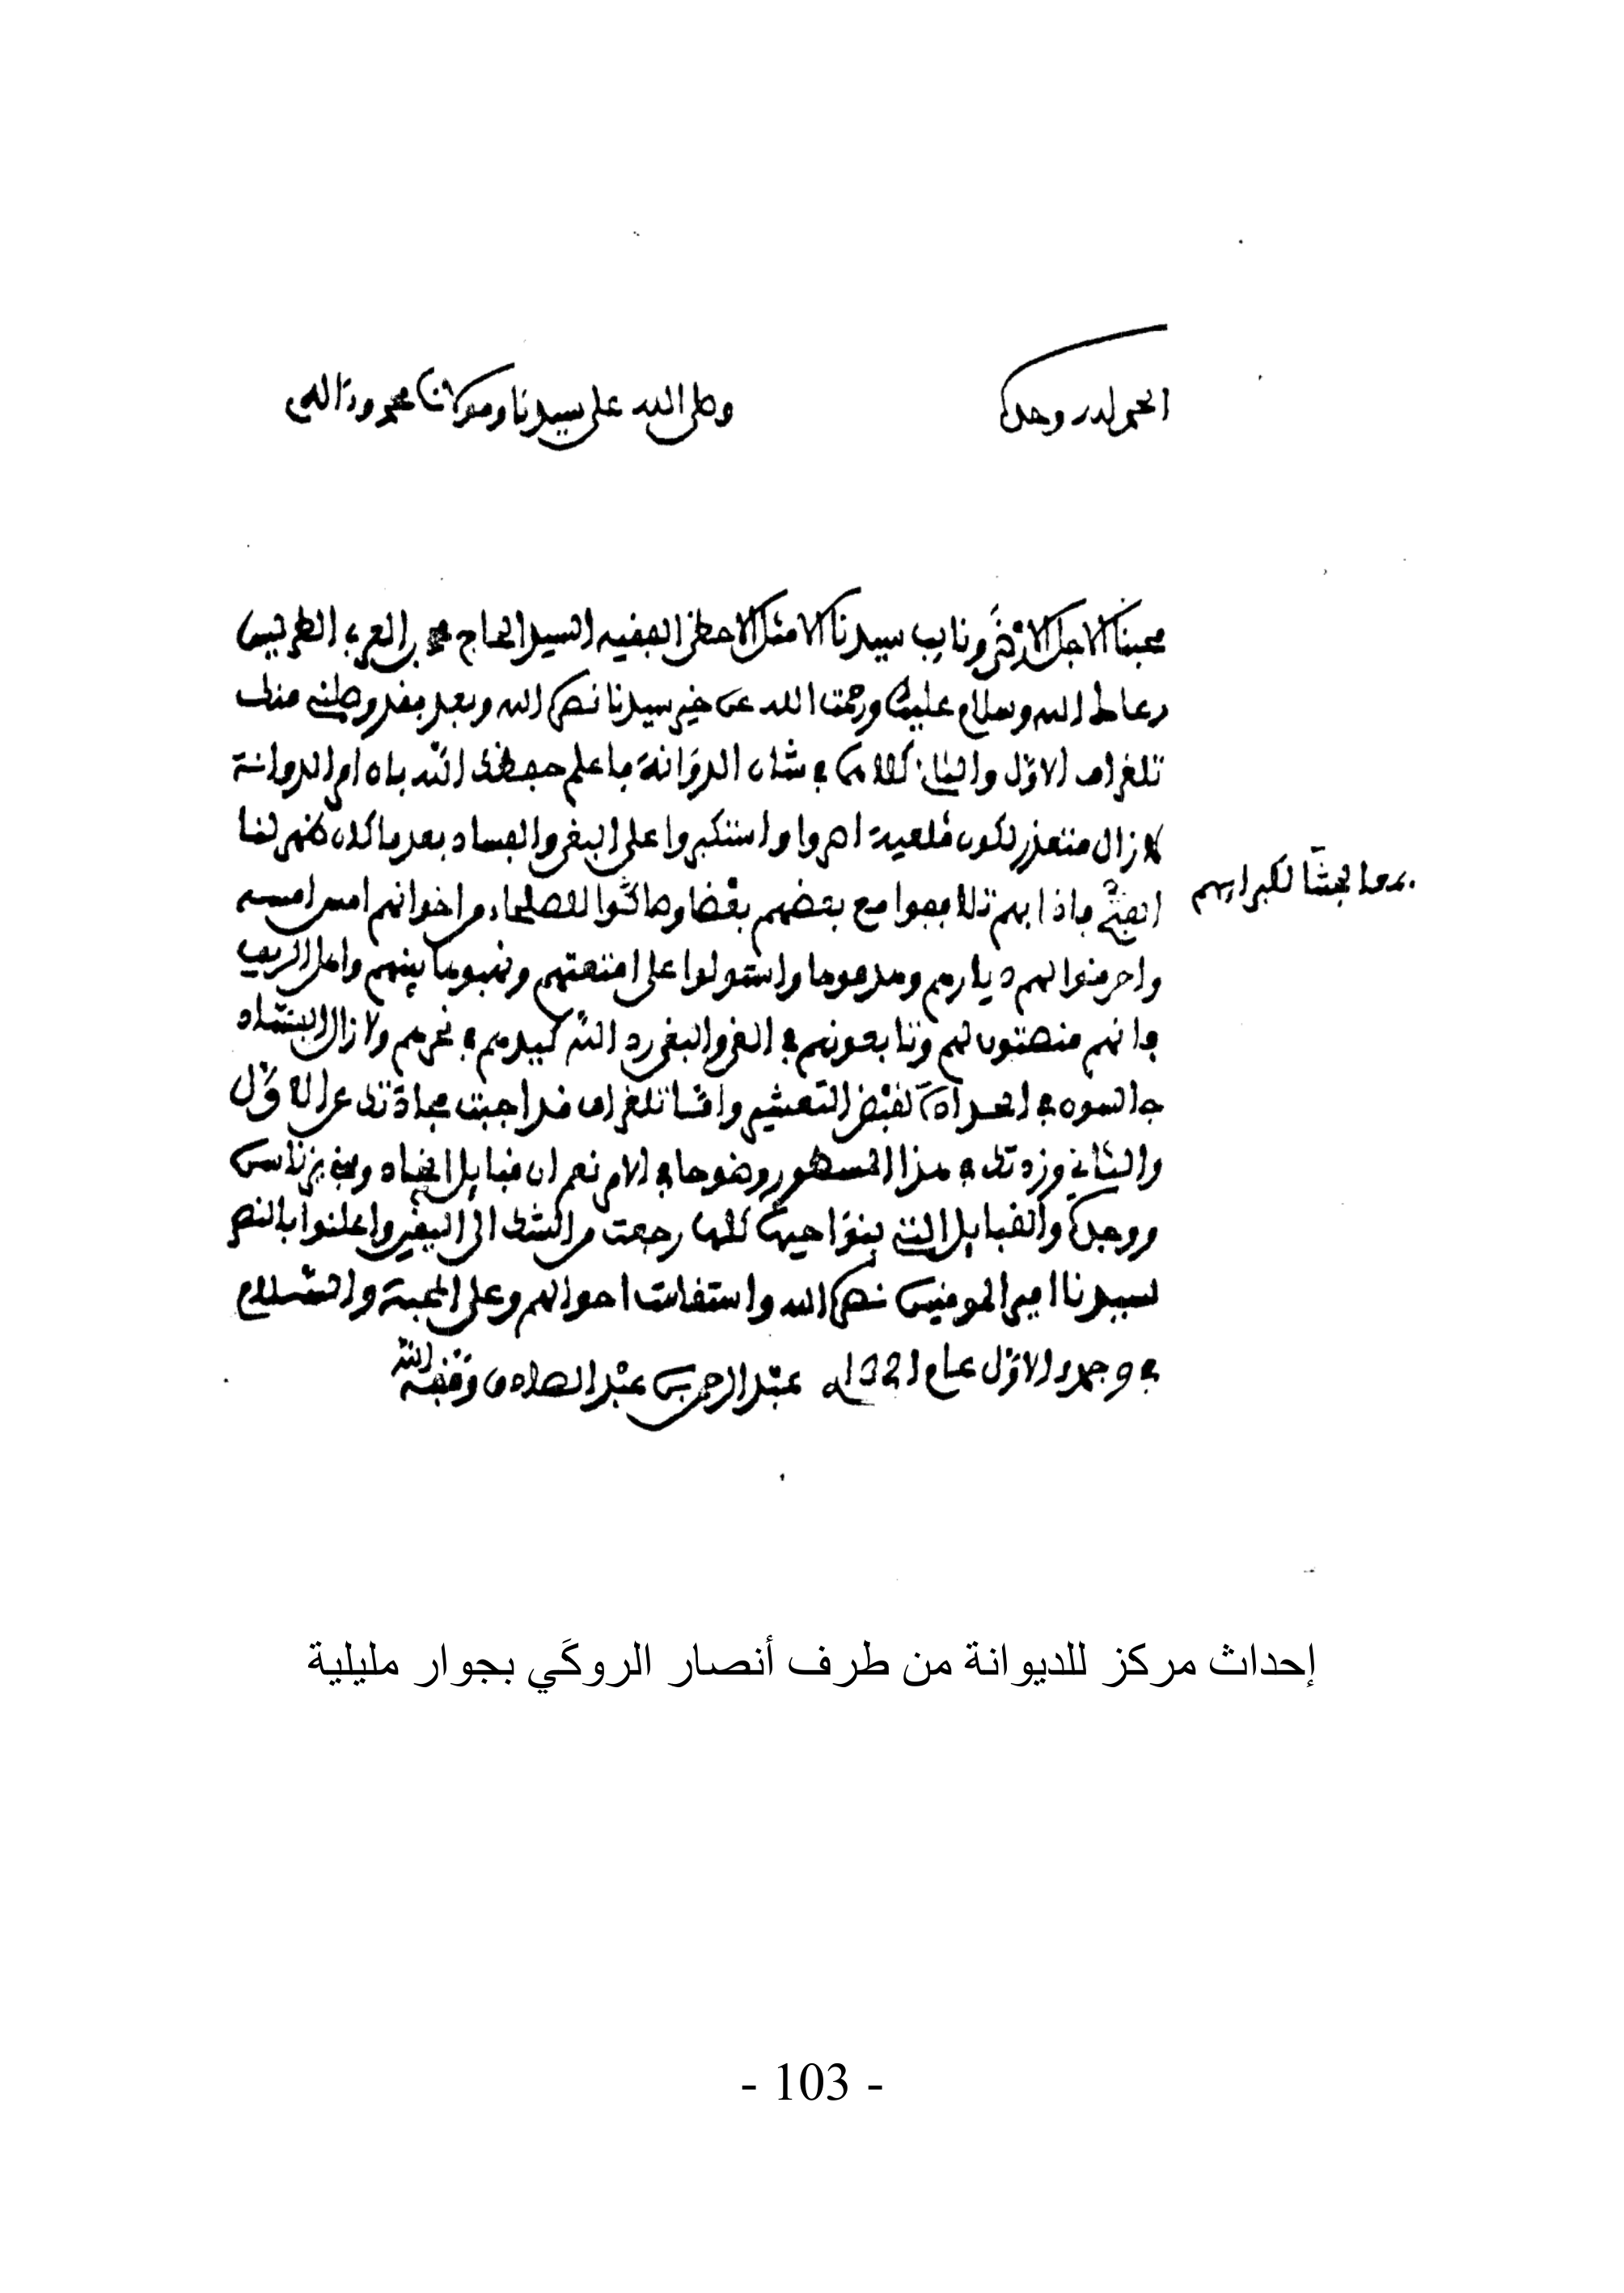 الحمد لله وحده
وصلى الله على سيدنا ومولانا محمد وءاله
محبنا الاجل الارضى ونايب سيدنا الامثل الاحظى الفقيه السيد الحاج محمد بن العربي الطريس
رعاك الله وسلام عليك ورحمت الله عن خير سيدنا نصره الله وبعد فقد وصلني منك
تلغراف الاول والثاني كلاهما في شان الديوانة فاعلم حفظك الله بان امر الديوانة
لازال متعذر لكون قلعية اصروا واستكبروا على البغي والفساد بعدما كان ظهر لنا
بعد ما بحثنا لكبرايهم
انفتح فاذا بهم تلافوا مع بعضهم بعضا وصاكوا للصلحاء من اخوانهم امس امسه
واحرقوا لهم ديارهم وهدموها واستولوا على امتعتهم ونهبوها بينهم واهل الريف
فانهم منصتون لهم وتابعونهم في الغي والبغي رد الله كيدهم في نحرهم ولازال
جالسون في لقبض التعشير واما تلغراف قد اجبت عن الاول
والثاني وزدتك في هذا المسطور وضوحا في الامر نعم ان قبايل انجاد وبني يزناسن
ووجدة والقبايل التي بنواحيها كلها رجعت من الشك الى اليقين واعلنوا بالنصر
لسيدنا امير المومنين نصره الله واستقامت احوالهم وعلى المحبة والسلام
في 9 جمدى الاول عام 1321 عبد الرحمن بن عبد الصادق وفقه الله
إحداث مركز للديوانة من طرف أنصار الروكَي بجوار مليلية
- 103 -